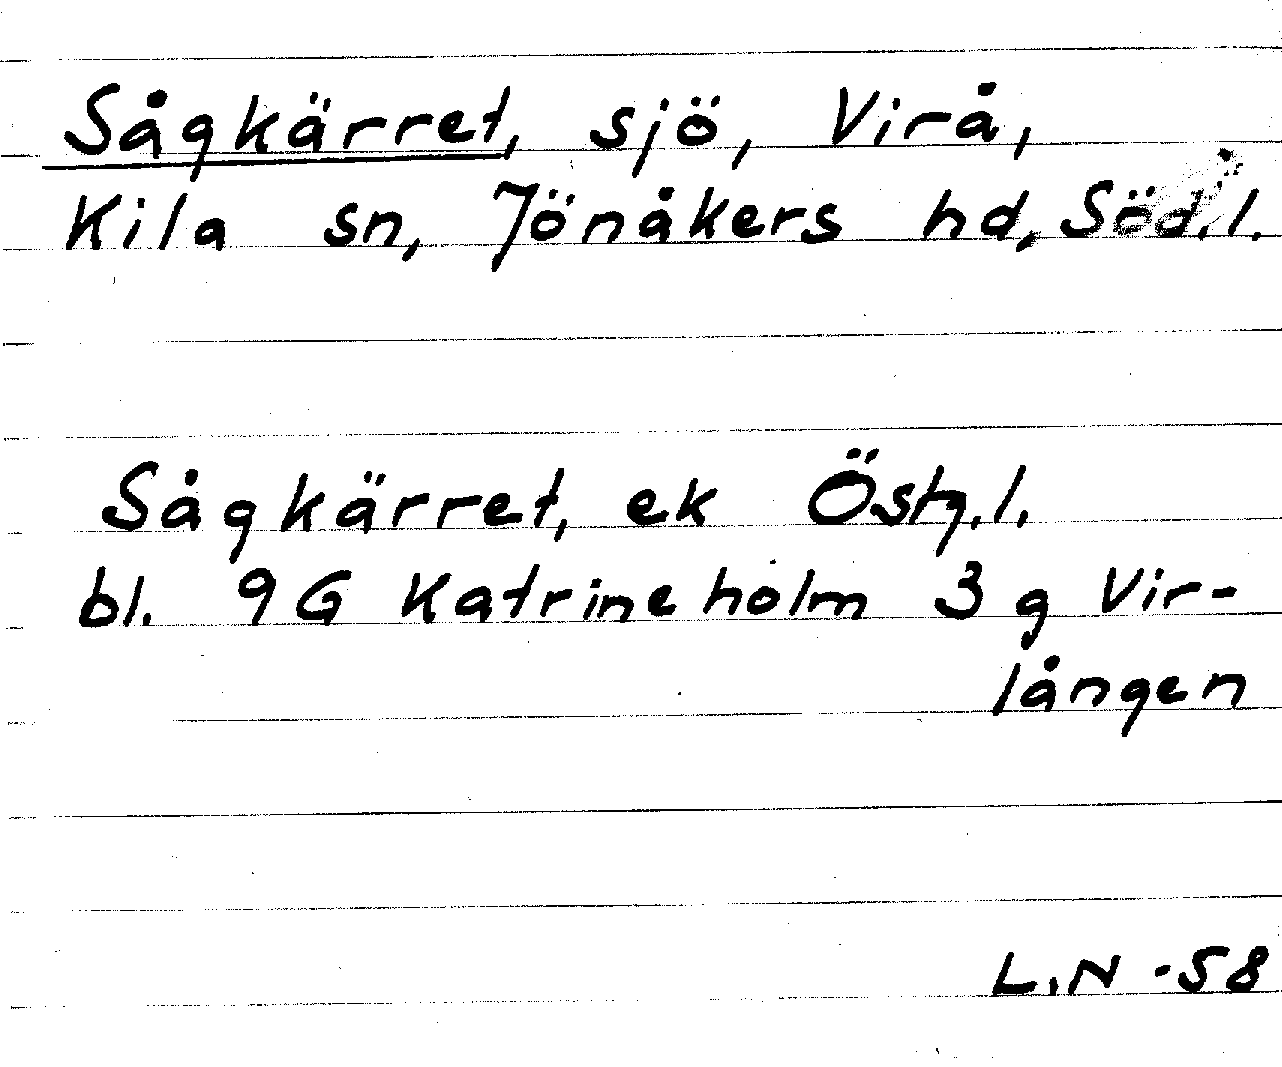 Sågkärret, sjö, Virå,
Kila sn, Jönåkers hd, Söd.l.
Sågkärret, ek Östg.l.
bl. 9G Katrineholm 3 g Vir-
lången
L.N -58